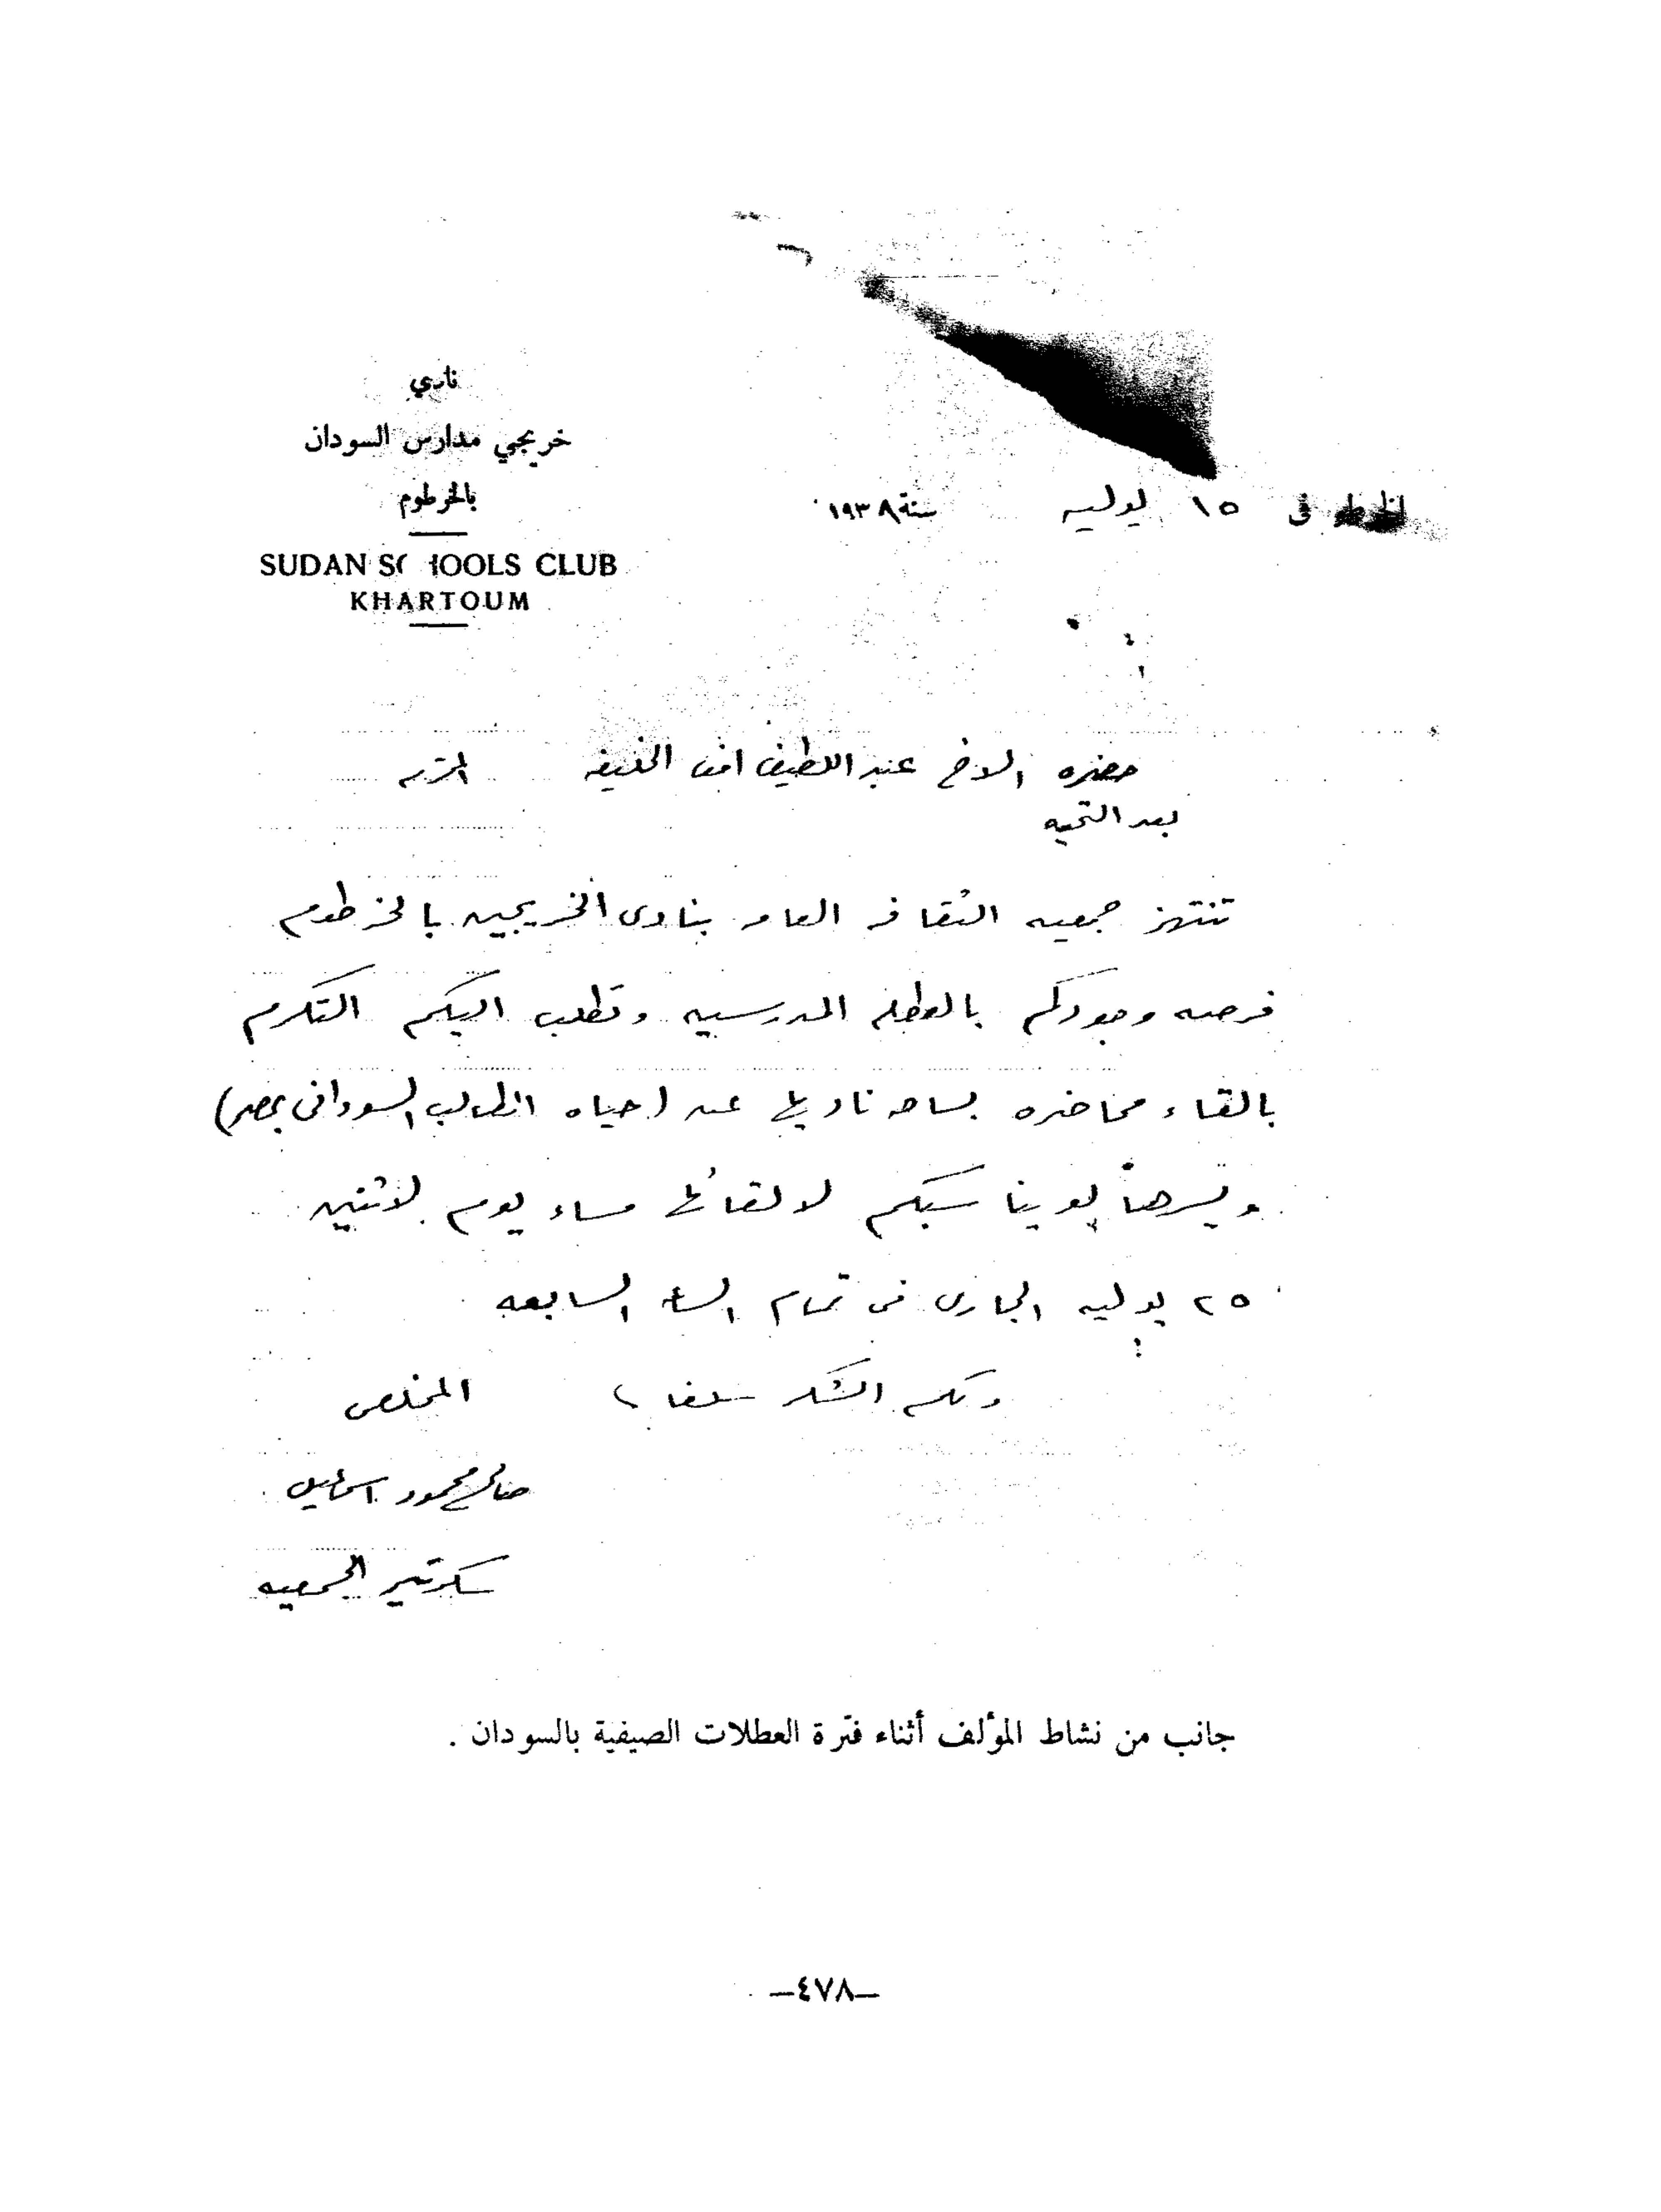 نادي
خريجي مدارس السودان
بالخرطوم
SUDAN SCHOOLS CLUB
KHARTOUM
الخرطوم في ١٥ يوليه سنة ١٩٣٨
حضره الاخ عبد اللطيف افندى الخليفه المحترم
بعد التحيه
تنتهز جمعيه الثقافه العامه بنادى الخريجين بالخرطوم
فرصه وجودكم بالعطله المدرسيه وتطلب اليكم التكرم
بالقاء محاضره بساحه ناديها عن (حياه الطالب السودانى بمصر)
ويسرها لو يناسبكم لالقائها مساء يوم الاثنين
٢٥ يوليه الجارى فى تمام الساعه السابعه
ولكم الشكر سلفا، المخلص
صالح محمود اسماعيل
سكرتير الجمعيه
جانب من نشاط المؤلف أثناء فترة العطلات الصيفية بالسودان .
–٤٧٨–